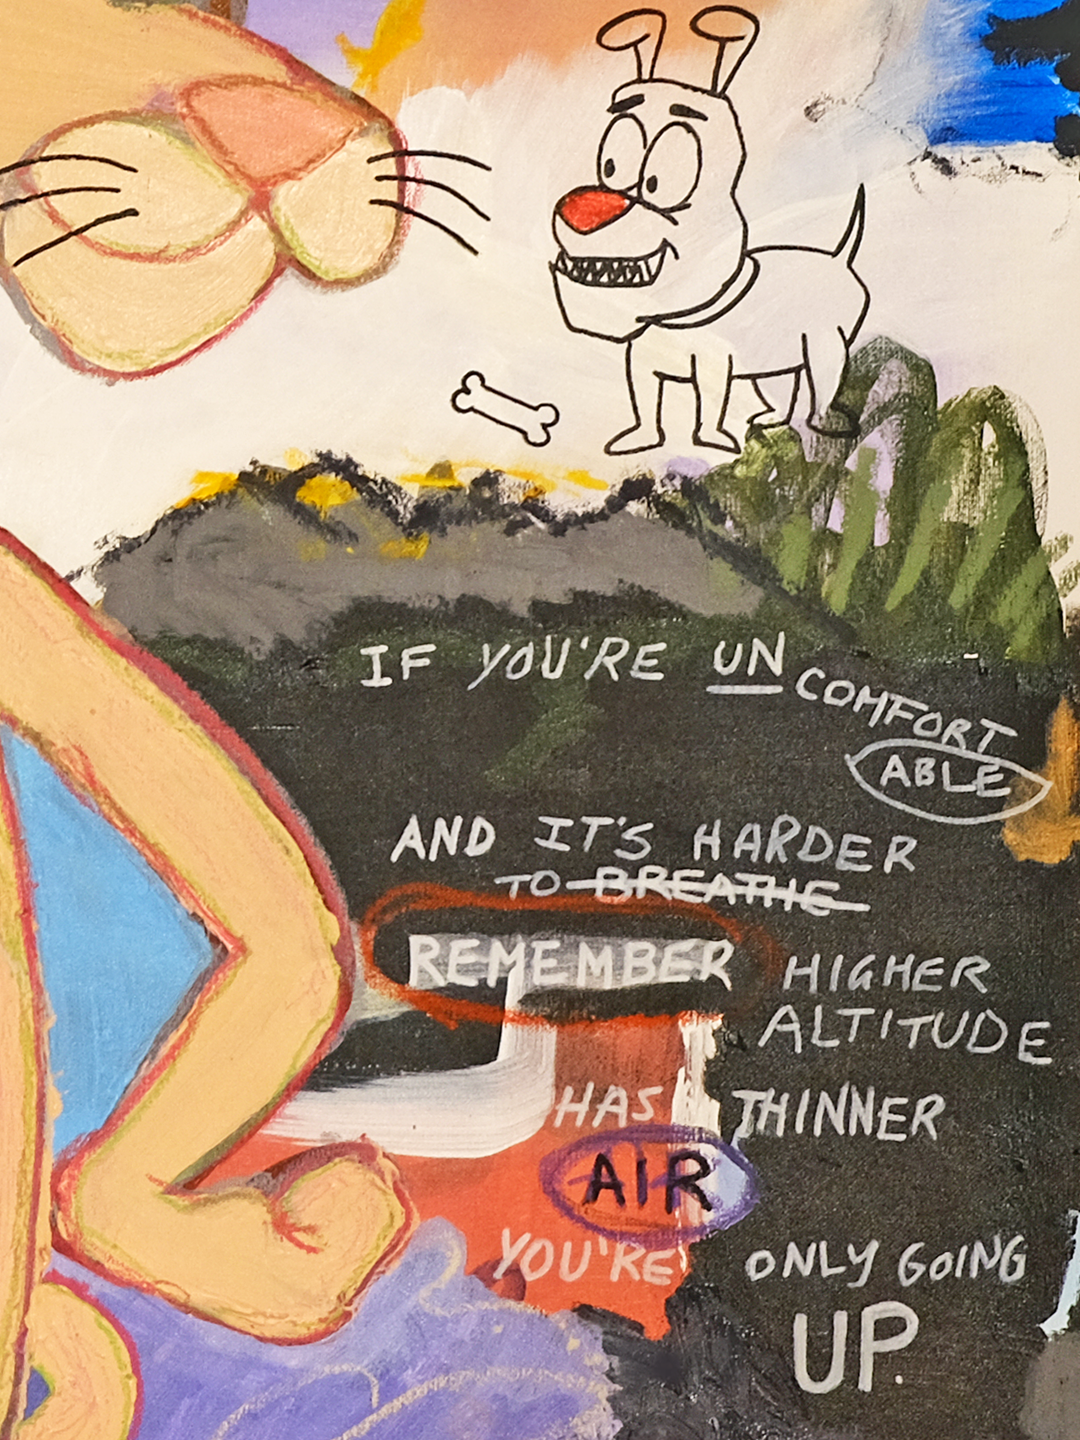 IF YOU'RE UNCOMFORTABLE
AND IT'S HARDER
TO BREATHE
REMEMBER HIGHER
ALTITUDE
HAS THINNER
AIR
YOU'RE ONLY GOING
UP.